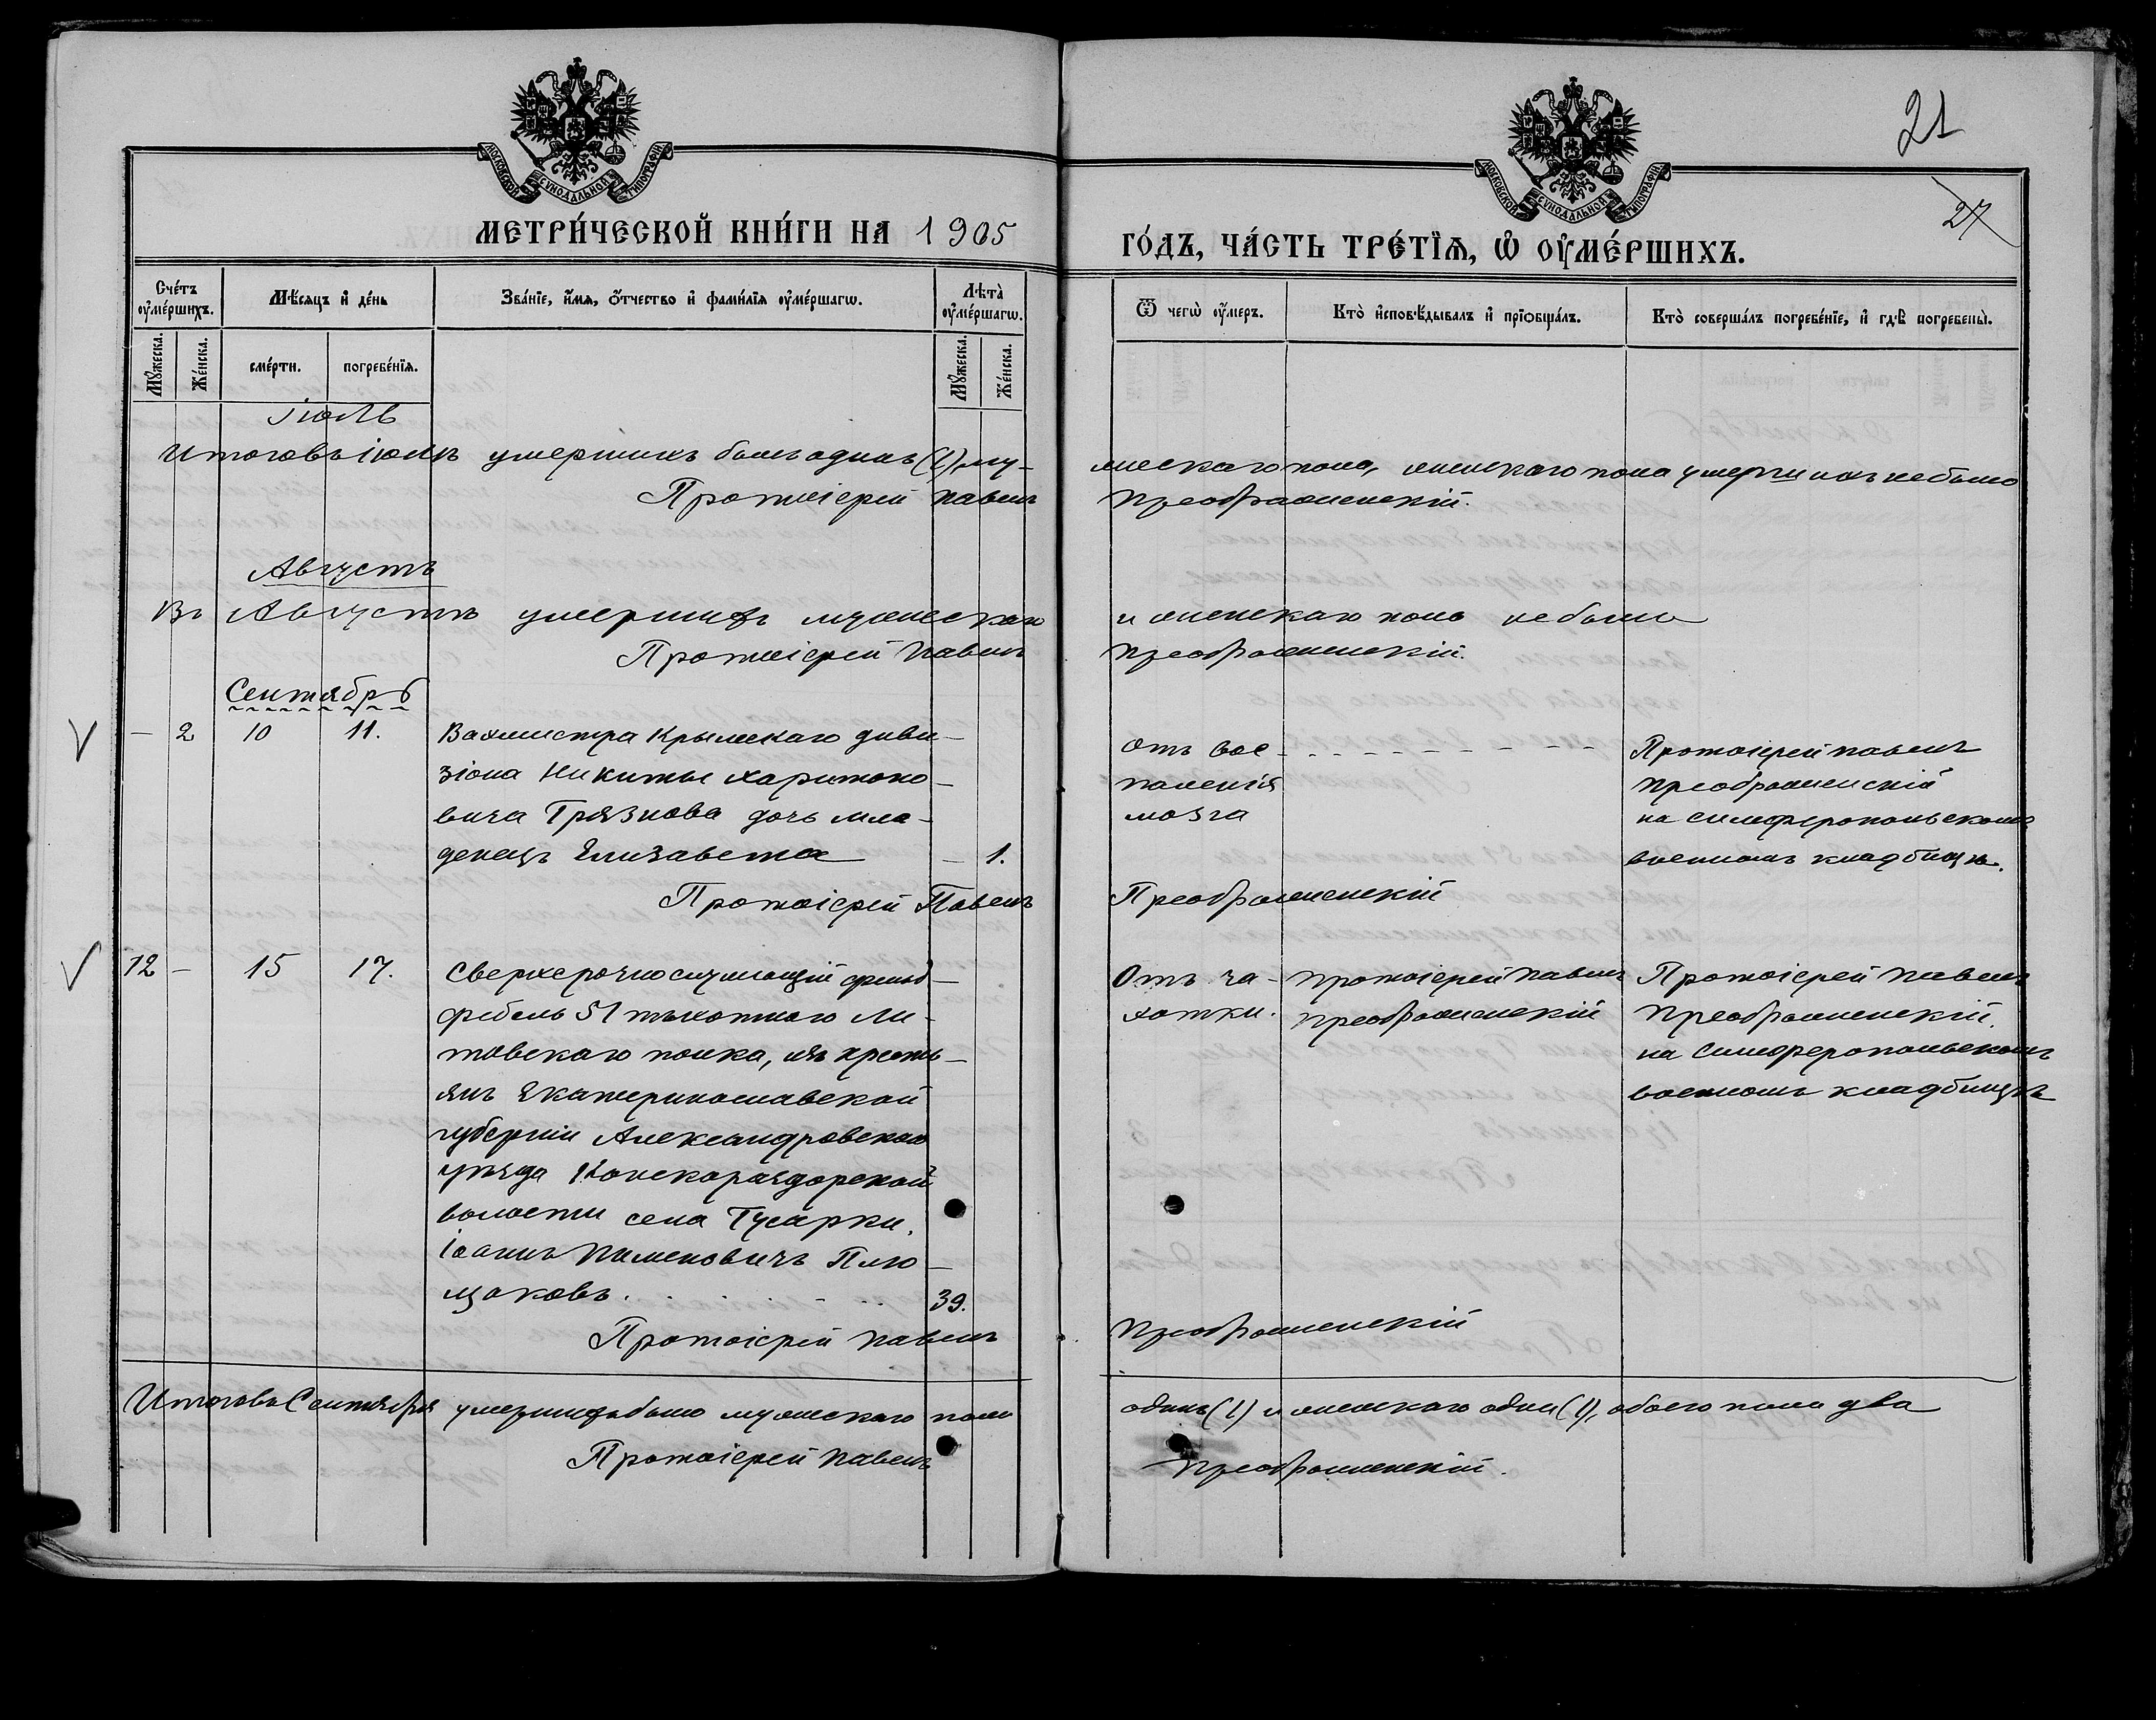 МОСКОВСКОЙ СѴНОДАЛЬНОЙ ТИПОГРАФІИ
МЕТРИ́ЧЕСКОЙ КНИ́ГИ НА 1905
Сче́тъ ᲂу҆ме́ршихъ.
Мѣ́сяцъ и҆ де́нь
Зва́нїе, и҆́мя, ѻ҆́тчество и҆ фами́лїя ᲂу҆ме́ршагѡ.
Лѣта̀ ᲂу҆ме́ршагѡ.
Мꙋ́жеска.
Же́нска.
сме́рти.
погребе́нїя.
Мꙋ́жеска.
Же́нска.
Іюль
Итого въ іюлѣ умершихъ былъ одинъ (1) му-
Протоіерей Павелъ
Августъ
Въ Августѣ умершихъ мужескаго
Протоіерей Павелъ
Сентябрь
— 2 10 11. Вахмистра Крымскаго диви-
зіона Никиты Харитоно-
вича Грязнова дочь мла-
денецъ Елизавета — 1.
Протоіерей Павелъ
12 — 15 17. Сверхсрочнослужащій фельд-
фебель 51 пѣхотнаго Ли-
товскаго полка, изъ кресть-
янъ Екатеринославской
губерніи Александровскаго
уѣзда Конскораздорской
волости села Гусарки,
Іоаннъ Пименовичъ Плю-
щаковъ. 39.
Протоіерей Павелъ
Итого въ Сентябрѣ умершихъ было мужескаго пола
Протоіерей Павелъ
21
27
МОСКОВСКОЙ СѴНОДАЛЬНОЙ ТИПОГРАФІИ
ГО́ДЪ, ЧА́СТЬ ТРЕ́ТЇѦ, Ѡ҆ ОУ҆МЕ́РШИХЪ.
Ѿ чегѡ̀ ᲂу҆́меръ.
Кто̀ и҆сповѣ́дывалъ и҆ прїѡбща́лъ.
Кто̀ соверша́лъ погребе́нїе, и҆ гдѣ̀ погребены̀.
жескаго пола, женскаго пола умершихъ не было
Преображенскій.
и женскаго пола не было
Преображенскій.
Отъ вос-
паленія
мозга
Протоіерей Павелъ
Преображенскій
на Симферопольскомъ
военномъ кладбищѣ.
Преображенскій
Отъ ча-
хотки.
Протоіерей Павелъ
Преображенскій
Протоіерей Павелъ
Преображенскій.
на Симферопольскомъ
военномъ кладбищѣ
Преображенскій
одинъ (1) и женскаго одна (1), обоего пола два
Преображенскій.